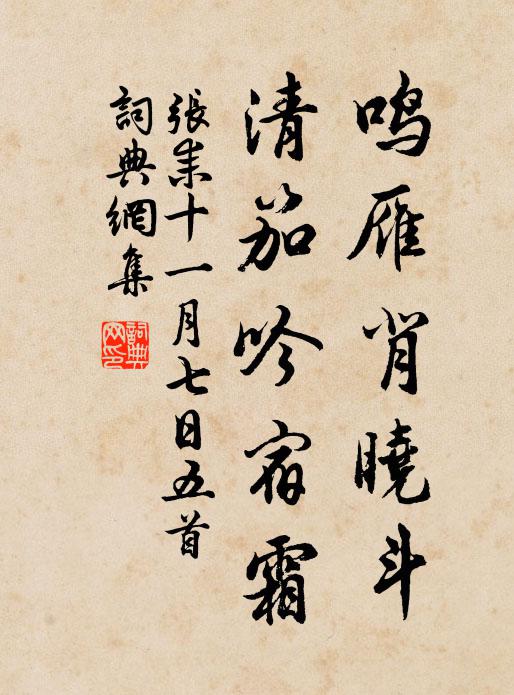 鸣雁背曉斗
清笳吟宿霜
張耒十一月七日五首
詞典網集
詞典
网印